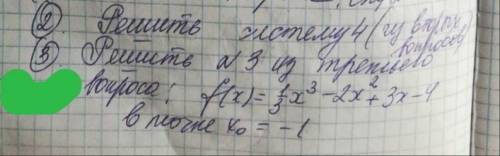 ② Решить систему 4 (из вторых вопросов
③. Решить №3 из третьего
вопроса: f(x) = 1/3 x³ - 2x² + 3x - 4
в точке x₀ = -1